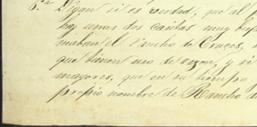 6.ª Digan si es verdad, que al
hay unas dos casitas muy
el Rancho de
que tienen uso de razon, y si
mayores, que en su tiempo
propio nombre de Rancho de